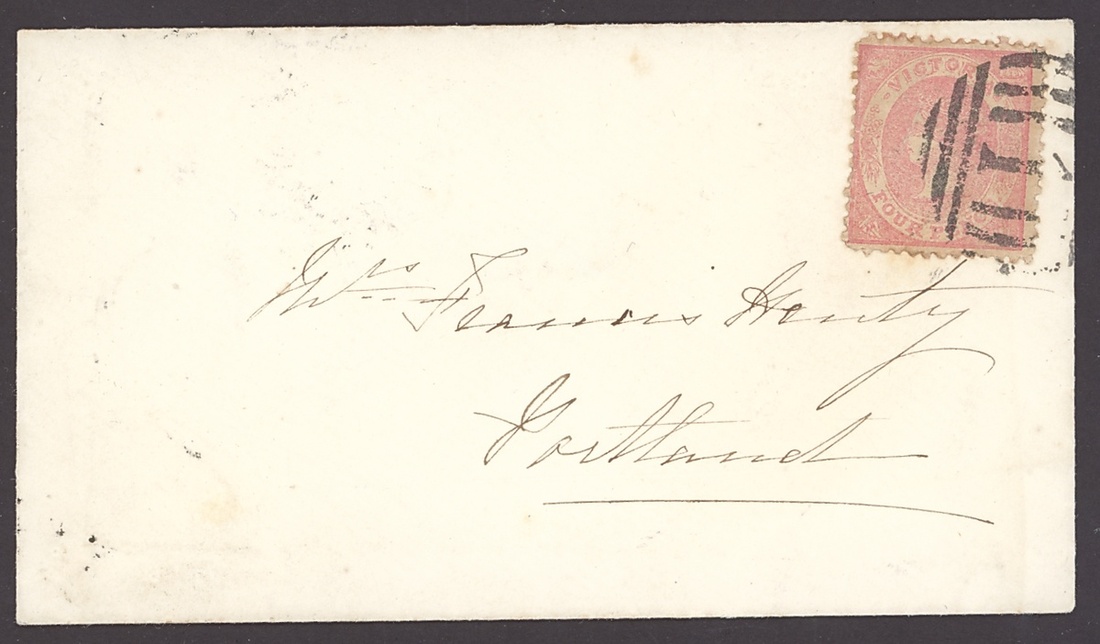 VICTORIA
FOUR
Mrs Francis Henty
Portland